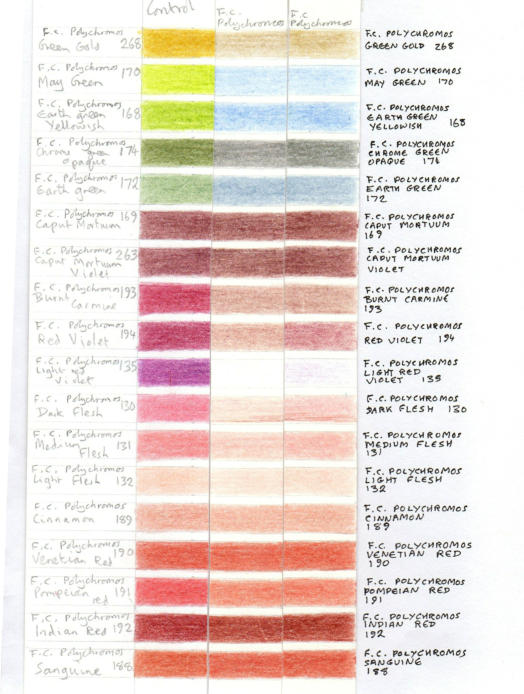 Control
F.C.
Polychromos
F.C
Polychromos
F.C. Polychromos
Green Gold 268
F.C. POLYCHROMOS
GREEN GOLD 268
F.C. Polychromos
May Green 170
F.C. POLYCHROMOS
MAY GREEN 170
F.C. Polychromos
Earth green 168
Yellowish
F.C. POLYCHROMOS
EARTH GREEN
YELLOWISH 168
F.C. Polychromos
Chrome green 174
opaque
F.C. POLYCHROMOS
CHROME GREEN
OPAQUE 174
F.C. Polychromos
Earth green 172
F.C. POLYCHROMOS
EARTH GREEN
172
F.C. Polychromos
Caput Mortuum 169
F.C. POLYCHROMOS
CAPUT MORTUUM
169
F.C. Polychromos
Caput Mortuum 263
Violet
F.C. POLYCHROMOS
CAPUT MORTUUM
VIOLET
F.C. Polychromos
Burnt 193
Carmine
F.C. POLYCHROMOS
BURNT CARMINE
193
F.C. Polychromos
Red Violet 194
F.C. POLYCHROMOS
RED VIOLET 194
F.C. Polychromos
Light red 135
Violet
F.C. POLYCHROMOS
LIGHT RED
VIOLET 135
F.C. Polychromos
Dark Flesh 130
F.C. POLYCHROMOS
DARK FLESH 130
F.C. Polychromos
Medium 131
Flesh
F.C. POLYCHROMOS
MEDIUM FLESH
131
F.C. Polychromos
Light Flesh 132
F.C. POLYCHROMOS
LIGHT FLESH
132
F.C. Polychromos
Cinnamon 189
F.C. POLYCHROMOS
CINNAMON
189
F.C. Polychromos
Venetian Red 190
F.C. POLYCHROMOS
VENETIAN RED
190
F.C. Polychromos
Pompeian 191
red
F.C. POLYCHROMOS
POMPEIAN RED
191
F.C. Polychromos
Indian Red 192
F.C. POLYCHROMOS
INDIAN RED
192
F.C. Polychromos
Sanguine 188
F.C. POLYCHROMOS
SANGUINE
188